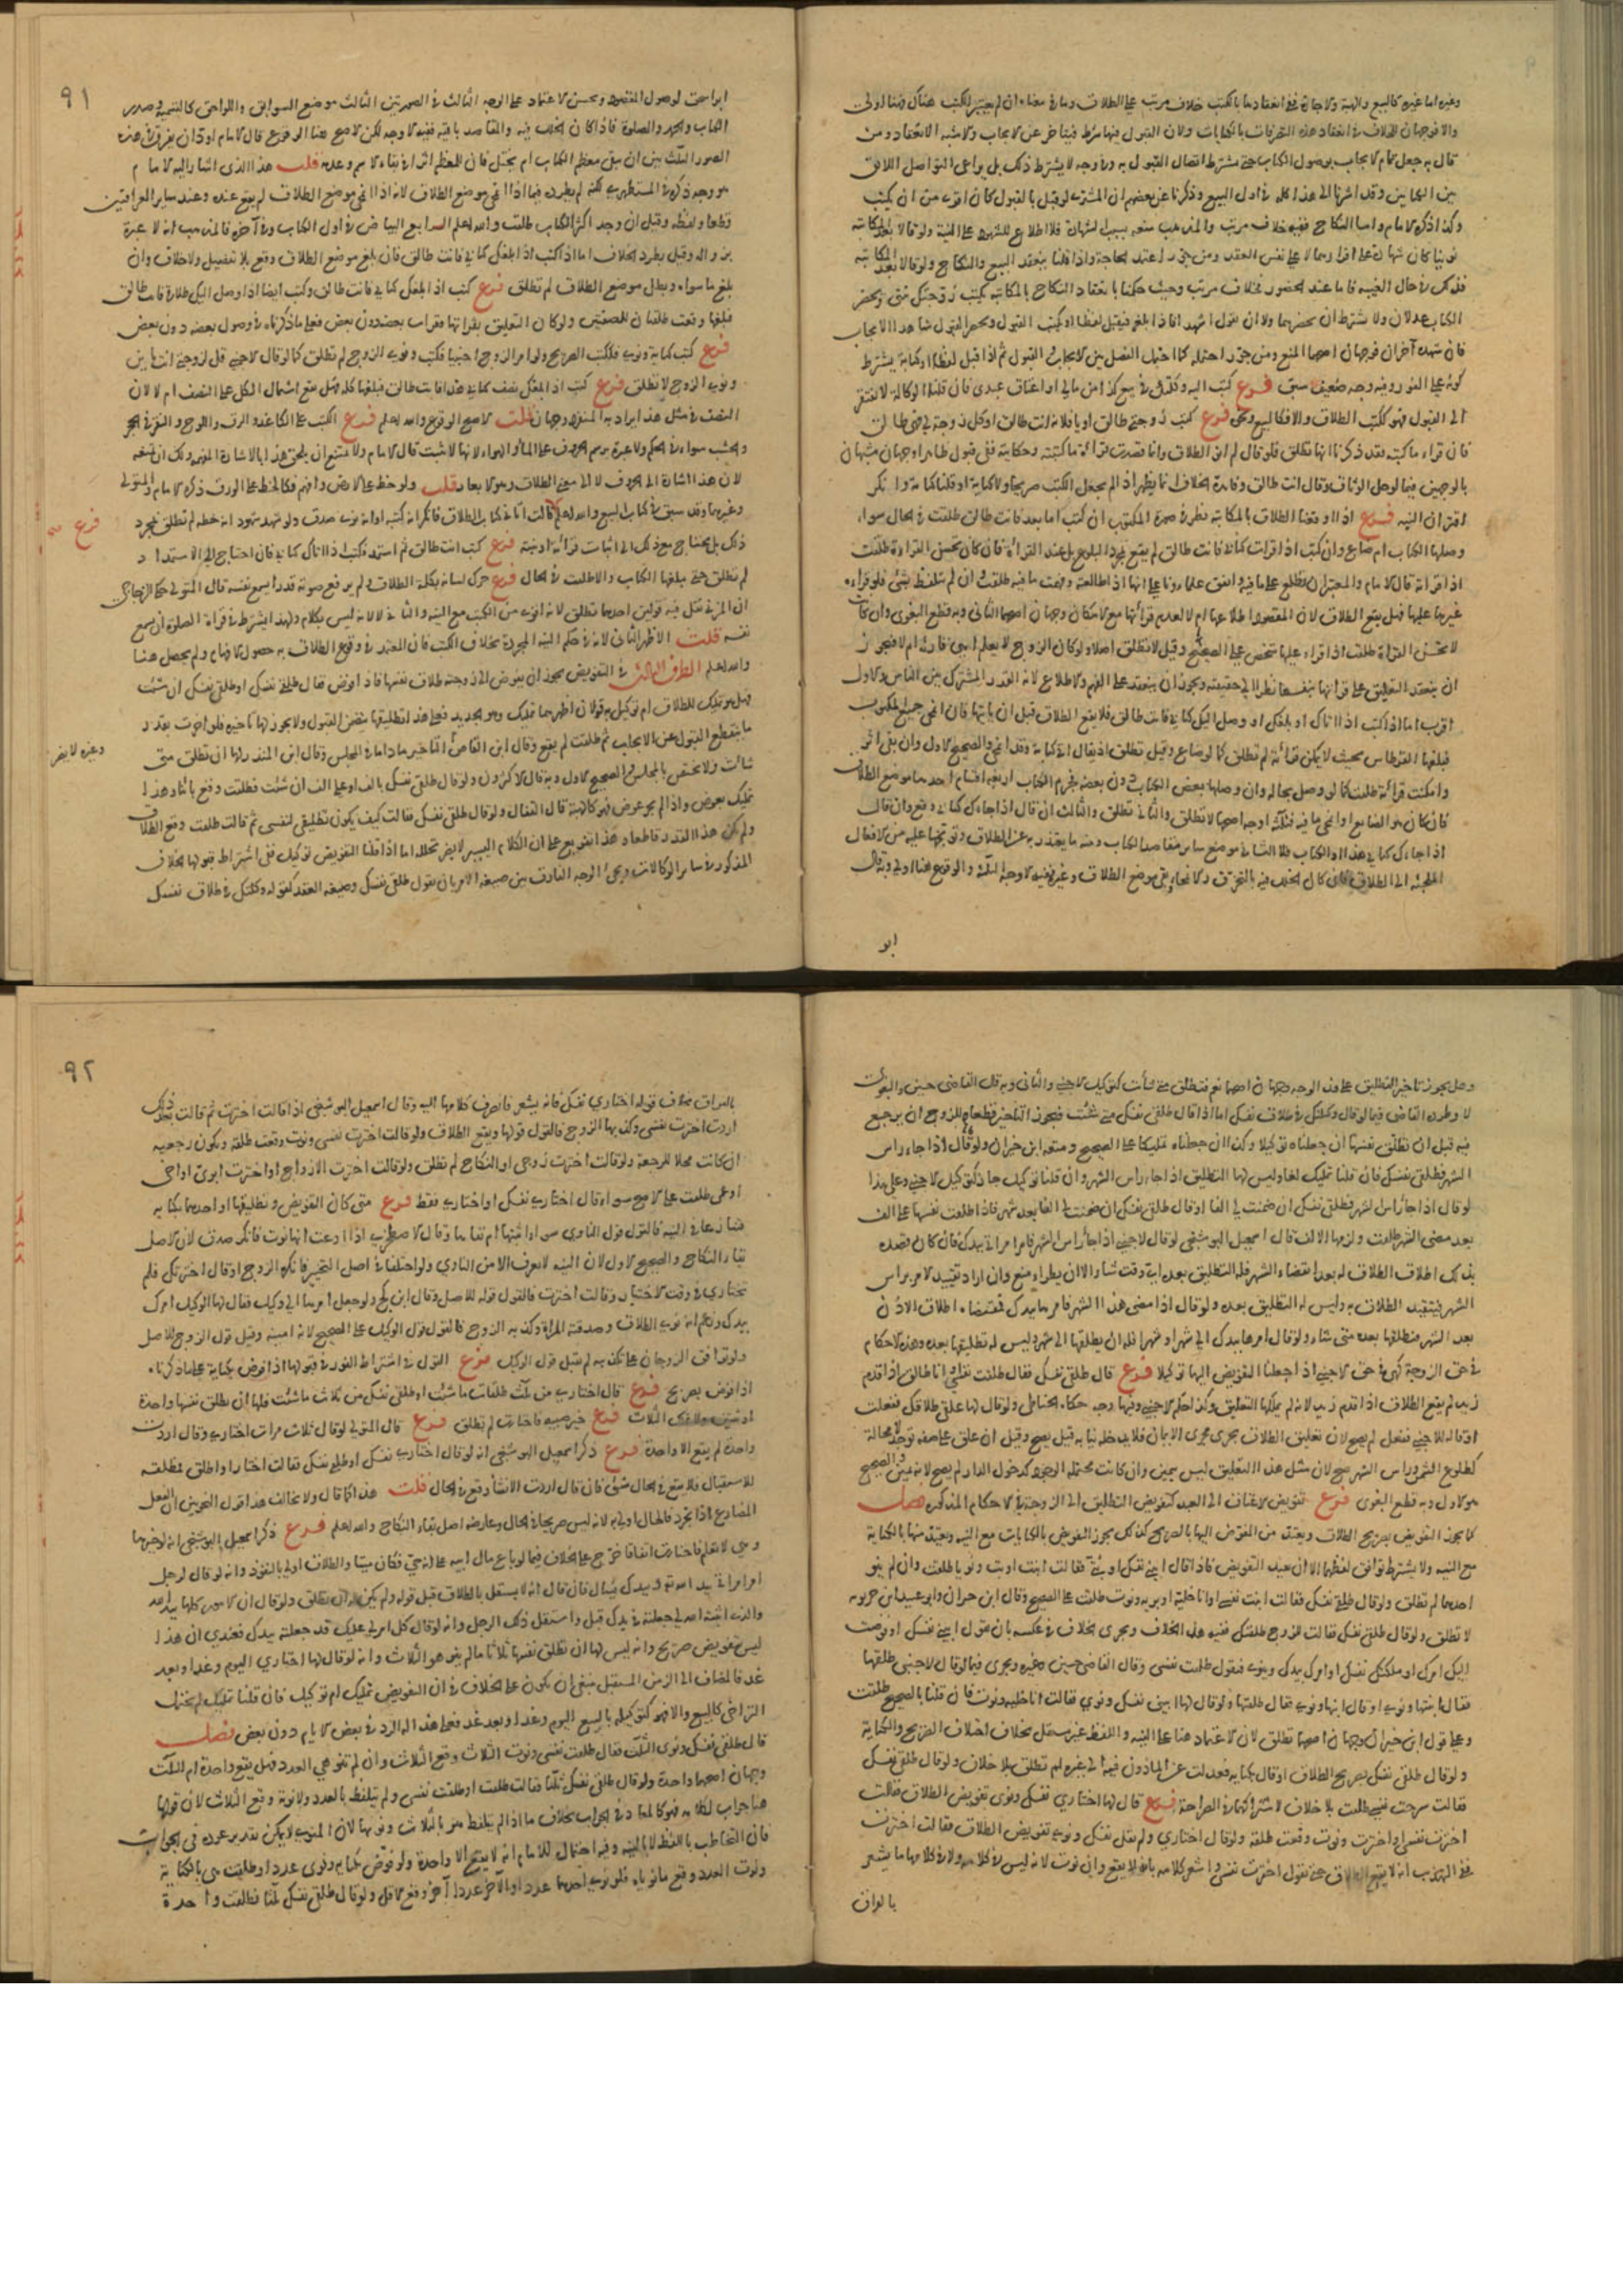 وغيره اما غيره كالبيع والهبة والاجارة ففي انعقادها بالكتب خلاف مرتب على الطلاق وما في معناه ان لم يعتبر الكتب هناك فهنا اولى
والا فوجهان للخلاف في انعقاد هذه التصرفات بالكنايات ولان القبول فيها شرط فيتأخر عن الايجاب والاشبه الانعقاد ومن
قال به جعل تمام الايجاب بوصول الكتاب حتى يشترط اتصال القبول به وفي وجه لا يشترط ذلك بل يراعى التواصل اللائق
بين الكتابين وقد اشرنا الى هذا كله في اول البيع وذكرنا عن بعضهم ان المشتري لو قبل بالقول كان اقوى من ان يكتب
وكذا ذكره الامام واما النكاح ففيه خلاف مرتب والمذهب منعه بسبب الشهادة فلا اطلاع للشهود على النية ولو قالا بعد المكاتبة
نوينا كان شهادة على اقرارهما لا على نفس العقد ومن جوز اعتمد الحاجة واذا قلنا ينعقد البيع والنكاح بالمكاتبة
فذلك في حال الغيبة فاما عند الحضور فخلاف مرتب وحيث حكمنا بانعقاد النكاح بالمكاتبة يكتب زوجتك بنتي ويحضر
الكتاب عدلان ولا يشترط ان يحضرهما ولا ان يقول اشهدا فاذا بلغه فيقبل لفظا او يكتب القبول ويحضر القبول شاهدا الايجاب
فان شهده آخران فوجهان اصحهما المنع ومن جوز احتمله كما احتمل الفصل بين الايجاب والقبول ثم اذا قبل لفظا او كتابة يشترط
كونه على الفور وفيه وجه ضعيف سبق فرع كتب اليه وكلتك في بيع كذا من مالي او اعتاق عبدي فان قلنا الوكالة لا تفتقر
الى القبول فهو ككتب الطلاق والا فكالبيع ونحوه فرع كتب زوجتي طالق او يا فلانة انت طالق او كل زوجة لي فهي طالق
فان قراء ما كتبه فقد ذكرنا انها تطلق فلو قال لم انو الطلاق وانما قصدت قراءة ما كتبته وحكايته ففي قبوله ظاهرا وجهان مشبهان
بالوجهين فيما لو حل الوثاق وقال انت طالق وفائدة الخلاف انما يظهر اذا لم يجعل الكتب صريحا ولا كناية او قلنا كناية وانكر
اقتران النية فرع اذا اوقعنا الطلاق بالمكاتبة نظر في صورة المكتوب ان كتب اما بعد فانت طالق طلقت في الحال سواء
وصلها الكتاب ام ضاع وان كتب اذا قرات كتابي فانت طالق لم يقع بمجرد البلوغ بل عند القراءة فان كانت تحسن القراءة طلقت
اذا قراته قال الامام والمعتبر ان تطلع على ما فيه واتفق علماؤنا على انها اذا طالعته وفهمت ما فيه طلقت ان لم تتلفظ بشئ فلو قراه
غيرها عليها فهل يقع الطلاق لان المقصود اطلاعها ام لا لعدم قراءتها مع الامكان وجهان اصحهما الثاني وبه قطع البغوي وان كانت
لا تحسن القراءة طلقت اذا قراه عليها شخص على الصحيح وقيل لا تطلق اصلا ولو كان الزوج لا يعلم اهي قارئة ام لا فيجوز
ان ينعقد التعليق على قراتها بنفسها نظرا الى حقيقته ويجوز ان ينعقد على الفهم والاطلاع لانه القدر المشترك بين الناس والاول
اقرب اما اذا كتب اذا اتاك او بلغك او وصل اليك كتابي فانت طالق فلا يقع الطلاق قبل ان ياتيها فان انمحى جميع المكتوب
فبلغها القرطاس بحيث لا يمكن قراءته لم تطلق كما لو ضاع وقيل تطلق اذ يقال اتى كتابه وقد انمحى والصحيح الاول وان بقي اثر
وامكنت قراءته طلقت كما لو وصل بحاله وان وصلها بعض الكتاب دون بعض فخرم الكتاب اربعة اقسام احدها موضع الطلاق
فان كان هو الضايع او انمحى ما فيه فثلاثة اوجه اصحها لا تطلق والثاني تطلق والثالث ان قال اذا جاءك كتابي وقع وان قال
اذا جاءك كتابي هذا او الكتاب فلا الثاني موضع ساير مقاصد الكتاب ومنه ما يعتذر به عن الطلاق وتوبيخها عليه من الافعال
الملجئة الى الطلاق فان كان الخلل فيه بالتخرق والانمحاء وبقي موضع الطلاق وغيره ففيه الاوجه الثلاثة والوقوع هنا اولى وبه قال
ابو
٩١
ابو اسحق لوصول المقصود ويحسن الاعتماد على الوجه الثالث في الصورتين الثالث موضع السوابق واللواحق كالتسمية وصدر
الكتاب والحمد والصلوة فاذا كان الخلل فيه والمقاصد باقية ففيه الاوجه لكن الاصح هنا الوقوع قال الامام
الصور الثلاث بين ان يبقى معظم الكتاب ام يختل فان للمعظم اثرا في بقاء الاسم وعدمه قلت هذا الذي اشار اليه الامام
هو وجه ذكره في المستظهري لكنه لم يطرده فيما اذا انمحى موضع الطلاق لانه اذا انمحى موضع الطلاق لم يقع عنده وعند ساير العراقيين
قطعا ولفظه وقيل ان وجد اكثر الكتاب طلقت والله اعلم الرابع البياض في اول الكتاب وفي آخره فالمذهب انه لا عبرة
بزواله وقيل يطرد الخلاف اما اذا كتب اذا بلغك كتابي فانت طالق فان بلغ موضع الطلاق وقع بلا تفصيل ولا خلاف وان
بلغ ما سواه وبطل موضع الطلاق لم تطلق فرع كتب اذا بلغك كتابي فانت طالق وكتب ايضا اذا وصل اليك طلاقي فانت طالق
فبلغها وقعت طلقتان للصفتين ولو كان التعليق بقراتها فقرات بعضه دون بعض فعلى ما ذكرناه في وصول بعضه دون بعض
فرع كتب كناية ونوى فلكتب الصريح ولو امر الزوج اجنبيا فكتب ونوى الزوج لم تطلق كما لو قال لاجنبي قل لزوجتي انت باين
ونوى الزوج لا تطلق فرع كتب اذا بلغك نصف كتابي هذا فانت طالق فبلغها كله فهل يقع اشتمال الكل على النصف ام لا لان
النصف في مثل هذا يراد به المنفرد وجهان قلت الاصح الوقوع والله اعلم فرع الكتب على الكاغد والرق واللوح والنقر في الحجر
والخشب سواء في الحكم ولا عبرة برسم الحروف على الماء والهواء لانها لا تثبت قال الامام ولا يمتنع ان يلحق هذا بالاشارة المفهمة ولك ان تمنعه
لان هذا اشارة الى الحروف لا الى معنى الطلاق وهو الابعاد قلت ولو خط على الارض وافهم فكالخط على الورق ذكره الامام والمتولي
وغيرهما وقد سبق في كتاب البيع والله اعلم فرع قالت اتاني كتاب الطلاق فانكر انه كتبه او انه نوى صدق ولو شهد شهود انه خطه لم تطلق بمجرد
ذلك بل يحتاج مع ذلك الى اثبات قراءته او نيته فرع كتب انت طالق ثم استمد فكتب اذا اتاك كتابي فان احتاج الى الاستمداد
لم تطلق حتى يبلغها الكتاب والا طلقت في الحال فرع حرك لسانه بكلمة الطلاق ولم يرفع صوته قدرا يسمع نفسه قال المتولي حكى الزجاجي
ان المزني نقل فيه قولين احدهما تطلق لانه اقوى من الكتب مع النية والثاني لا لانه ليس بكلام ولهذا يشترط في قراة الصلوة ان يسمع
نفسه قلت الاظهر الثاني لانه في حكم النية المجردة بخلاف الكتب فان المعتمد في وقوع الطلاق به حصول الافهام ولم يحصل هنا
والله اعلم الطرف الثالث في التفويض يجوز ان يفوض الى زوجته طلاق نفسها فاذا فوض فقال طلقي نفسك او طلقي نفسك ان شئت
فهل هو تمليك للطلاق ام توكيل به قولان اظهرهما تمليك وهو الجديد فعلى هذا تطليقها يتضمن القبول ولا يجوز لها تاخيره فلو اخرت بقدر
ما ينقطع القبول عن الايجاب ثم طلقت لم يقع وقال ابن القاص التاخير ما داما في المجلس وقال ابن المنذر لها ان تطلق متى
شاءت ولا يختص بالمجلس والصحيح الاول وبه قال الاكثرون ولو قال طلقي نفسك بالف او على الف ان شئت فطلقت وقع بائنا وهذا
تمليك بعوض واذا لم يجر عوض فهو كالهبة قال القفال ولو قال طلقي نفسك فقالت كيف يكون تطليقي لنفسي ثم قالت طلقت وقع الطلاق
ولم يكن هذا القدر قاطعا وهذا تفريع على ان الكلام اليسير لا يضر تخلله اما اذا قلنا التفويض توكيل ففي اشتراط قبولها الخلاف
المذكور في ساير الوكالات ويجئ الوجه الفارق بين صيغة الامر بان يقول طلقي نفسك وصيغة العقد كقوله وكلتك في طلاق نفسك
فرع
وغيره لا يضر
وهل يجوز تاخير التطليق على هذا الوجه وجهان اصحهما نعم فتطلق متى شاءت كتوكيل الاجنبي والثاني وبه قال القاضي حسين والبغوي
لا وطرده القاضي فيما لو قال وكلتك في طلاق نفسك اما اذا قال طلقي نفسك متى شئت فيجوز التاخير قطعا وللزوج ان يرجع
فيه قبل ان تطلق نفسها ان جعلناه توكيلا وكذا ان جعلناه تمليكا على الصحيح ومنعه ابن خيران ولو قال اذا جاء راس
الشهر فطلقي نفسك فان قلنا تمليك لغا وليس لها التطليق اذا جاء راس الشهر وان قلنا توكيل جاز كتوكيل الاجنبي وعلى هذا
لو قال اذا جاء راس الشهر فطلقي نفسك ان ضمنت لي الفا او قال طلقي نفسك ان ضمنت لي الفا بعد شهر فاذا طلقت نفسها على الف
بعد مضي الشهر طلقت ولزمها الالف قال اسمعيل البوشنجي لو قال لاجنبي اذا جاء راس الشهر فامر امراتي بيدك فان كان قصده
بذلك اطلاق الطلاق له بعد انقضاء الشهر فله التطليق بعده اي وقت شاء الا ان يطراء منع وان اراد تقييد الامر براس
الشهر فيتقيد الطلاق به وليس له التطليق بعده ولو قال اذا مضى هذا الشهر فامرها بيدك فمقتضاه اطلاق الاذن
بعد الشهر فيطلقها بعده متى شاء ولو قال امرها بيدك الى شهر او شهرا فله ان يطلقها الى شهر وليس له تطليقها بعده وهذه الاحكام
في حق الزوجة كهي في حق الاجنبي اذا جعلنا التفويض اليها توكيلا فرع قال طلقي نفسك فقال طلقت نفسي او انا طالق اذا قدم
زيد لم يقع الطلاق اذا قدم زيد لانه لم يملكها التعليق وكذا حكم الاجنبي وفيها وجه حكاه الحناطي ولو قال لها علقي طلاقك ففعلت
او قاله للاجنبي ففعل لم يصح لان تعليق الطلاق يجري مجرى الايمان فلا يدخله نيابة وقيل يصح وقيل ان علق على صفة توجد لا محالة
كطلوع الشمس وراس الشهر صح لان مثل هذا التعليق ليس بيمين وان كانت محتملة الوجود كدخول الدار لم يصح لانه يمين والصحيح
هو الاول وبه قطع البغوي فرع تفويض الاعتاق الى العبد كتفويض التطليق الى الزوجة في الاحكام المذكورة فصل
كما يجوز التفويض بصريح الطلاق ويعتد من المفوض اليها بالصريح كذلك يجوز التفويض بالكنايات مع النية ويعتد منها بالكناية
مع النية ولا يشترط توافق لفظيهما الا ان يقيد التفويض فاذا قال ابيني نفسك او بتي فقالت ابنت او بتت ونويا طلقت وان لم ينو
احدهما لم تطلق ولو قال طلقي نفسك فقالت ابنت نفسي او انا خلية او برية ونوت طلقت على الصحيح وقال ابن خيران وابو عبيد ابن حربويه
لا تطلق ولو قال طلقي نفسك فقالت للزوج طلقتك ففيه هذا الخلاف ويجري الخلاف في عكسه بان يقول ابيني نفسك او فوضت
اليك امرك او ملكتك نفسك او امرك بيدك وينوي فتقول طلقت نفسي وقال القاضي حسين وغيره ويجري فيما لو قال لاجنبي طلقها
فقال ابنتها ونوى او قال ابنها ونوى فقال طلقتها ولو قال لها ابيني نفسك ونوى فقالت انا خلية ونوت فان قلنا بالصحيح طلقت
وعلى قول ابن خيران وجهان اصحهما تطلق لان الاعتماد هنا على النية واللفظ غير مستقل بخلاف اختلاف الصريح والكناية
ولو قال طلقي نفسك بصريح الطلاق او قال بكناية فعدلت عن الماذون فيه الى غيره لم تطلق بلا خلاف ولو قال طلقي نفسك
فقالت سرحت نفسي طلقت بلا خلاف لاشتراكهما في الصراحة فرع قال لها اختاري نفسك ونوى تفويض الطلاق فقالت
اخترت نفسي او اخترت ونوت وقعت طلقة ولو قال اختاري ولم يقل نفسك ونوى تفويض الطلاق فقالت اخترت
ففي التهذيب انه لا يقع الطلاق حتى تقول اخترت نفسي واشعر كلامه بانه لا يقع وان نوت لانه ليس في كلامه ولا في كلامها ما يشعر
بالفراق
٩٢
بالفراق بخلاف قوله اختاري نفسك فانه يشعر فانصرف كلامها اليه وقال اسمعيل البوشنجي اذا قالت اخترت ثم قالت بعد ذلك
اردت اخترت نفسي وكذبها الزوج فالقول قولها ويقع الطلاق ولو قالت اخترت نفسي ونوت وقعت طلقة ويكون رجعية
ان كانت محلا للرجعة ولو قالت اخترت زوجي او النكاح لم تطلق ولو قالت اخترت الازواج او اخترت ابوي او اخي
او عمي طلقت على الاصح سواء قال اختاري نفسك او اختاري فقط فرع متى كان التفويض وتطليقها او احدهما بكناية
فتنازعا في النية فالقول قول الناوي سواء اثبتها ام نفاها وقال الاصطخري اذا ادعت انها نوت فانكر صدق لان الاصل
بقاء النكاح والصحيح الاول لان النية لا تعرف الا من الناوي ولو اختلفا في اصل التخيير فانكره الزوج او قال خيرتك فلم
تختاري في وقت الاختيار وقالت اخترت فالقول قوله للاصل وقال ابن كج ولو جعل امرها الى وكيل فقال لها الوكيل امرك
بيدك وزعم انه نوى الطلاق وصدقته المراة وكذبه الزوج فالقول قول الوكيل على الصحيح لانه امينه وقيل قول الزوج للاصل
ولو توافق الزوجان على تكذيبه لم يقبل قول الوكيل فرع القول في اشتراط الفور في قبولها اذا فوض بكناية على ما ذكرناه
اذا فوض بصريح فرع قال اختاري من ثلاث طلقات ما شئت او طلقي نفسك من ثلاث ما شئت فلها ان تطلق نفسها واحدة
او ثنتين ولا تملك الثلاث فرع خير صبية فاختارت لم تطلق فرع قال المتولي لو قال ثلاث مرات اختاري وقال اردت
واحدة لم يقع الا واحدة فرع ذكر اسمعيل البوشنجي انه لو قال اختاري نفسك او طلقي نفسك فقالت اختار او اطلق فمطلقه
للاستقبال فلا يقع في الحال شئ فان قال اردت الانشاء وقع في الحال قلت هذا كما قال ولا يخالف هذا قول النحويين ان الفعل
المضارع اذا تجرد فالحال اولى به لانه ليس صريحا في الحال وعارضه اصل بقاء النكاح والله اعلم فرع ذكر اسمعيل البوشنجي انه لو خيرها
وهي لا تعلم فاختارت اتفاقا خرج على الخلاف فيما لو باع مال ابيه على انه حي فكان ميتا والطلاق اولى بالنفوذ وانه لو قال لرجل
امر امراتي بيد الله تعالى وبيدك يسال فان قال اردت انه لا يستقل بالطلاق قبل قوله ولم يكن له ان يطلق ولو قال ان الامور كلها بيد الله
والذي اثبته الله لي جعلته في يدك قبل واستقل ذلك الرجل وانه لو قال كل امر لي عليك قد جعلته بيدك فعندي ان هذا
ليس بتفويض صريح وانه ليس لها ان تطلق نفسها ثلاثا ما لم ينو هو الثلاث وانه لو قال لها اختاري اليوم وغدا وبعد
غد فالمضاف الى الزمن المستقبل ينبغي ان يكون على الخلاف في ان التفويض تمليك ام توكيل فان قلنا تمليك لم يحتمل
التراخي كالبيع والا فهو كتوكيله بالبيع اليوم وغدا وبعد غد فعلى هذا له الرد في بعض الايام دون بعض فصل
قال طلقي نفسك ونوى الثلاث فقال طلقت نفسي ونوت الثلاث وقع الثلاث وان لم تنو هي العدد فهل يقع واحدة ام الثلاث
وجهان اصحهما واحدة ولو قال طلقي نفسك ثلاثا فقالت طلقت او طلقت نفسي ولم تتلفظ بالعدد ولا نوته وقع الثلاث لان قولها
هنا جواب لكلامه فهو كالمعاد في الجواب بخلاف ما اذا لم يتلفظ هو بالثلاث ونوى بها لان المنوي لا يمكن تقدير عوده في الجواب
فان التخاطب باللفظ لا بالنية وفيه احتمال للامام انه لا يقع الا واحدة ولو فوض بكناية ونوى عددا وطلقت هي بالكناية
ونوت العدد وقع ما نوياه فلو نوى احدهما عددا والآخر عددا آخر وقع الاقل ولو قال طلقي نفسك ثلاثا فطلقت واحدة